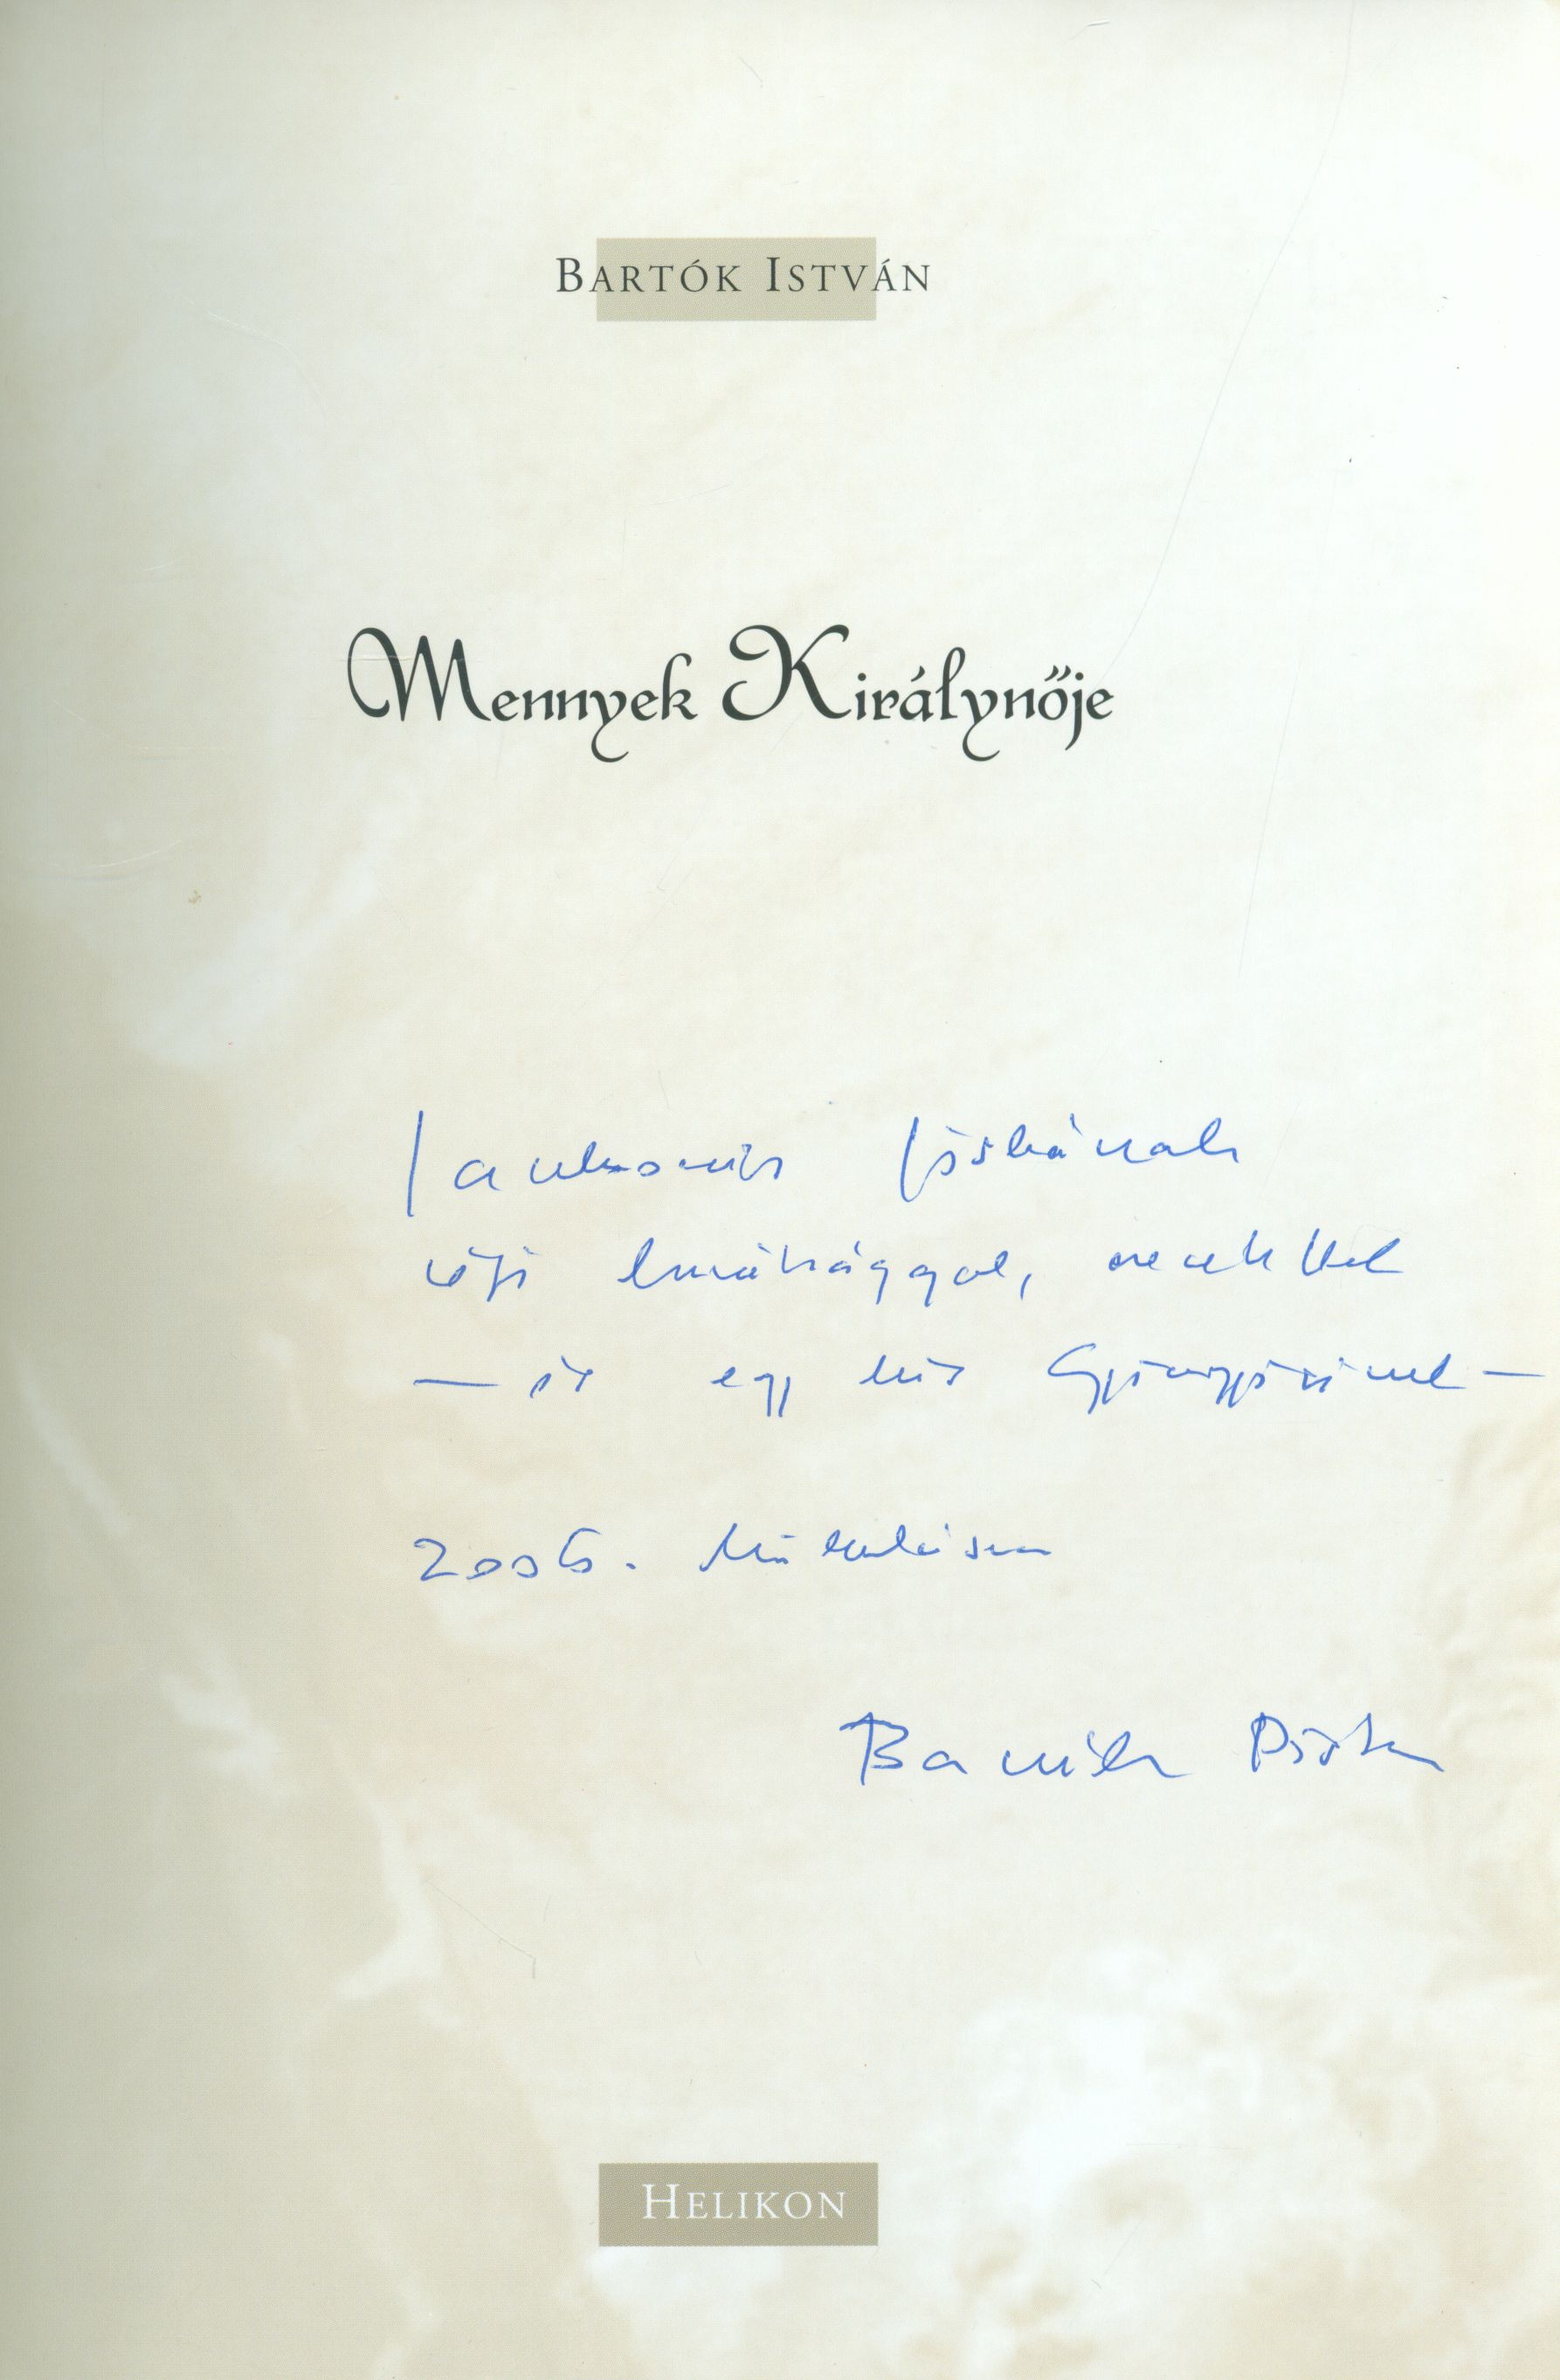 BARTÓK ISTVÁN
Mennyek Királynője
Jankovics Jóskának
régi barátsággal, szeretettel
— és egy kis Gyöngyösivel —
2006.
Bartók Pista
HELIKON